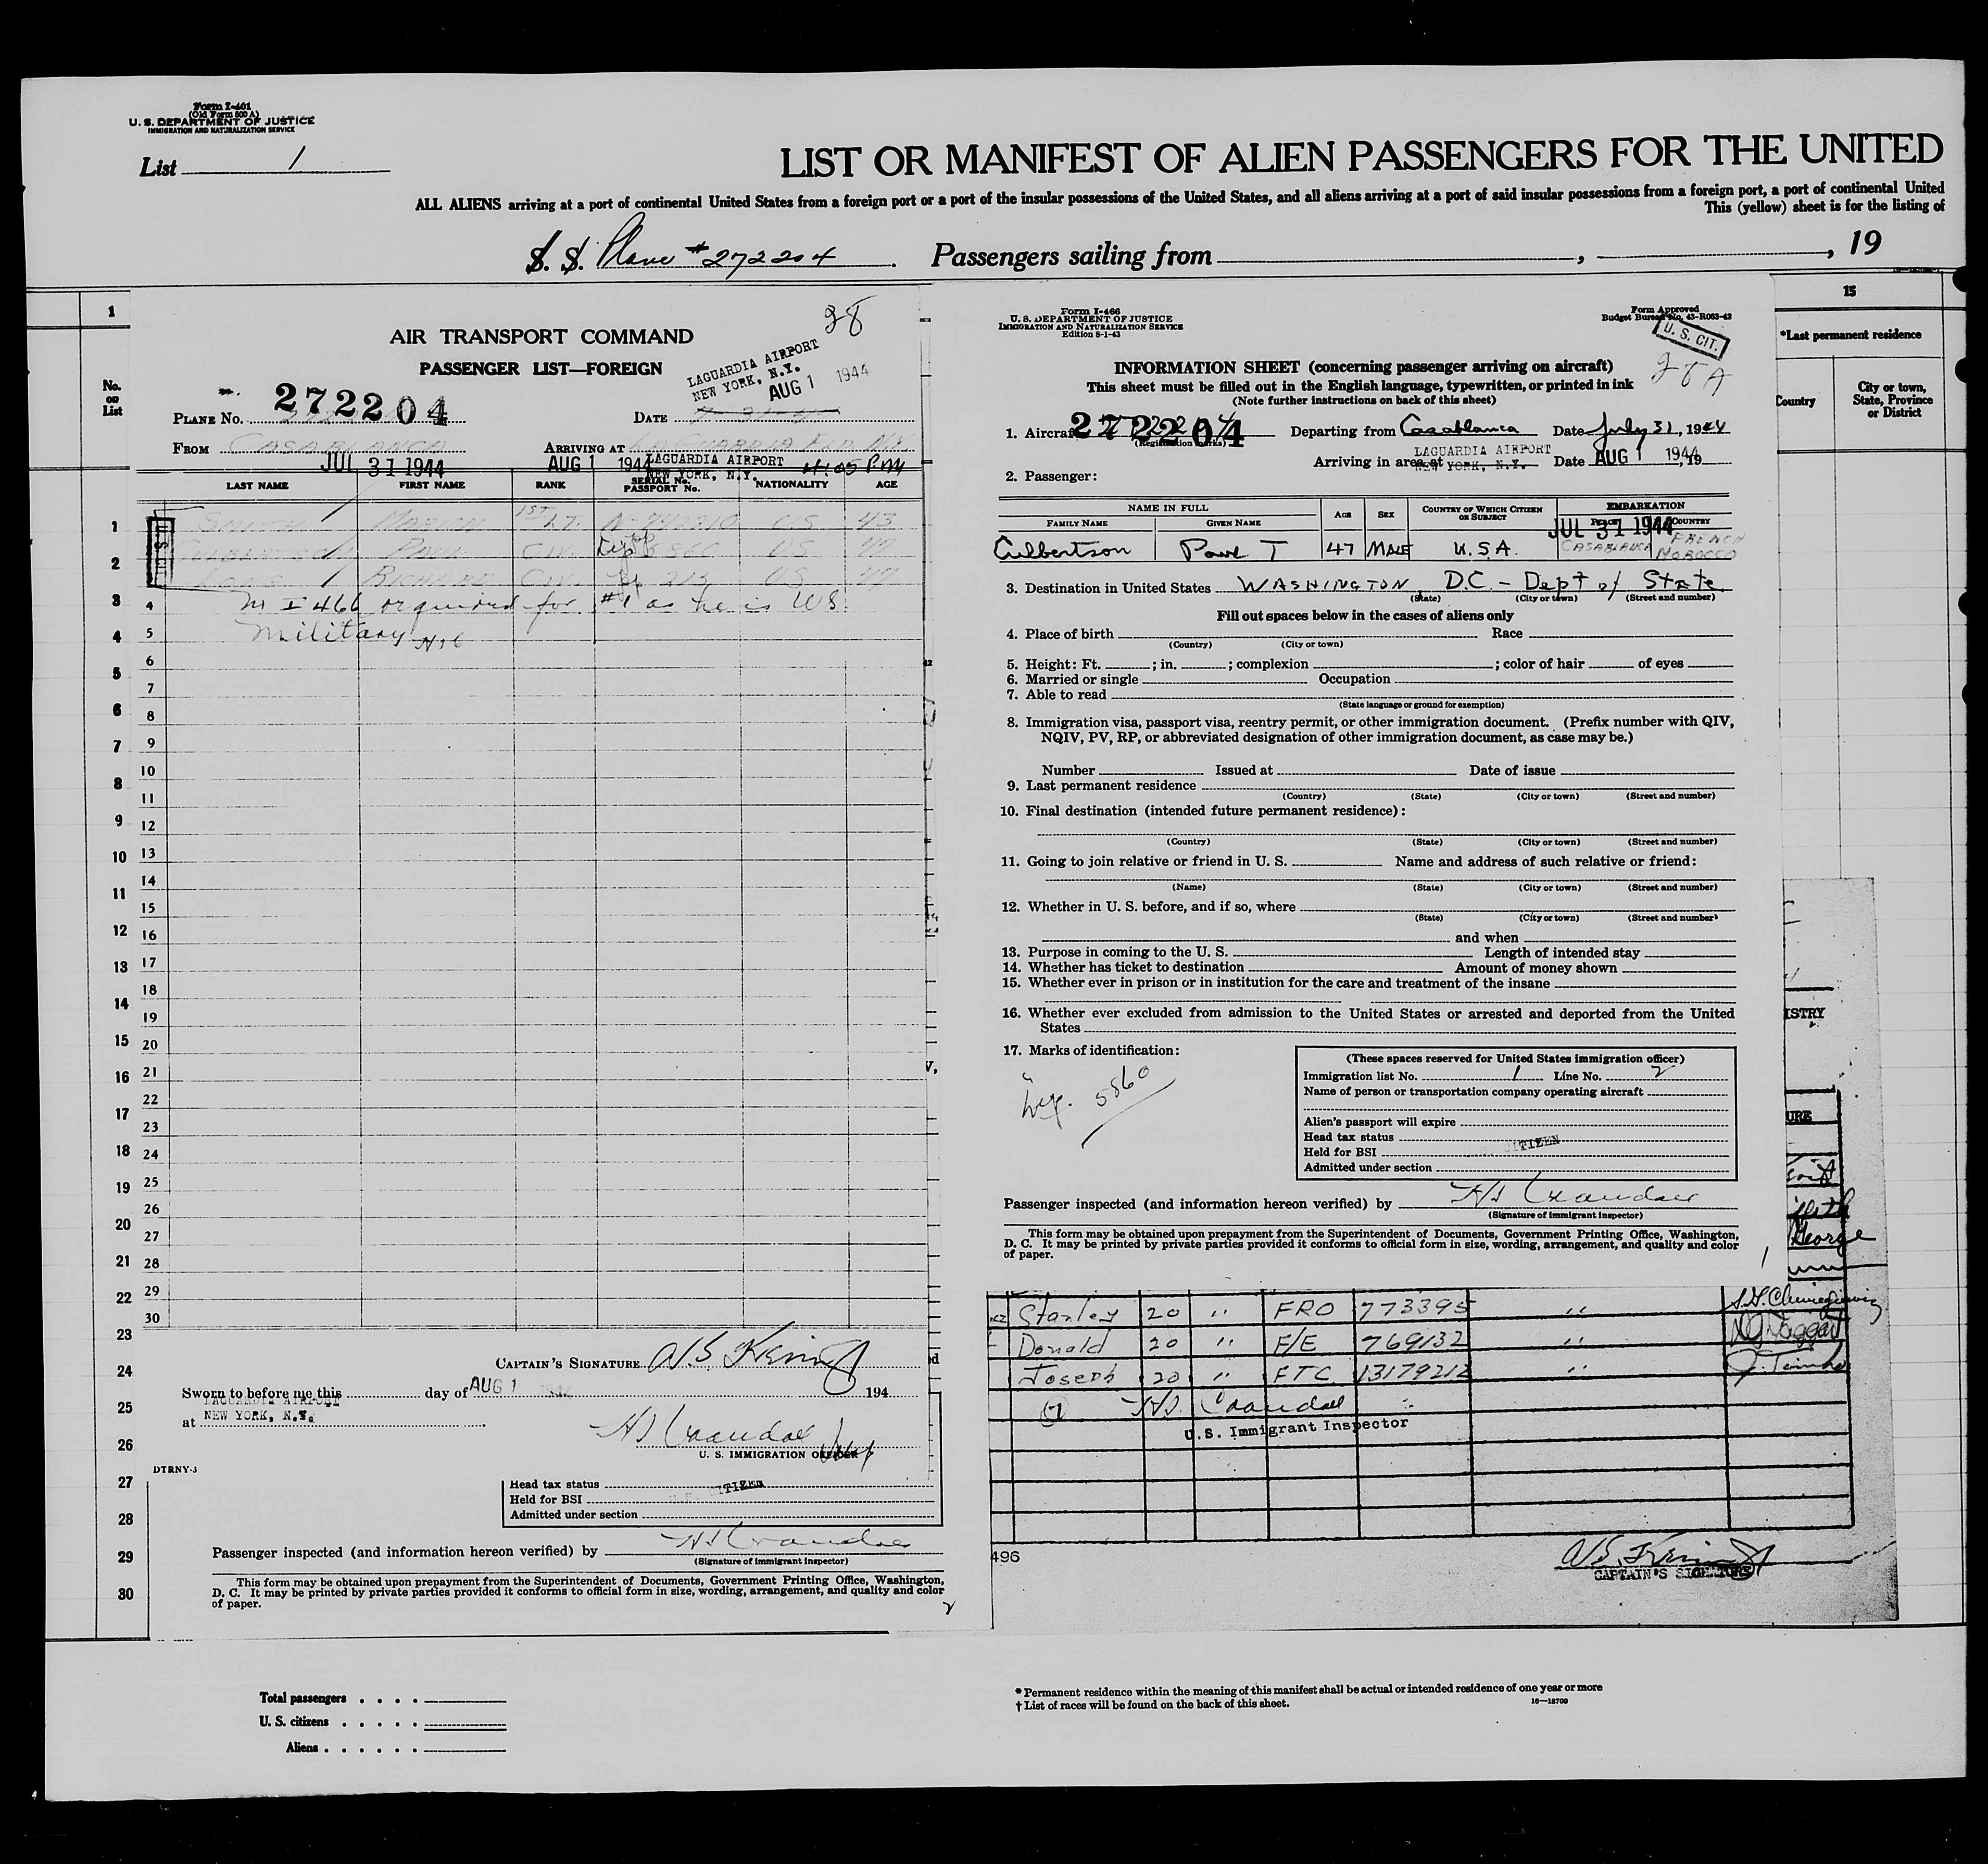 Form I-401
(Old Form 500 A)
U. S. DEPARTMENT OF JUSTICE
IMMIGRATION AND NATURALIZATION SERVICE
List 1
LIST OR MANIFEST OF ALIEN PASSENGERS FOR THE UNITED
ALL ALIENS arriving at a port of continental United States from a foreign port or a port of the insular possessions of the United States, and all aliens arriving at a port of said insular possessions from a foreign port, a port of continental United
This (yellow) sheet is for the listing of
S. S. Plane #272204. Passengers sailing from , , 19
1
No.
on
List
1
2
3
4
5
6
7
8
9
10
11
12
13
14
15
16
17
18
19
20
21
22
23
24
25
26
27
28
29
30
28
AIR TRANSPORT COMMAND
PASSENGER LIST—FOREIGN
LAGUARDIA AIRPORT
NEW YORK, N.Y.
AUG 1 1944
PLANE NO. 272204 DATE
FROM CASABLANCA ARRIVING AT LAGUARDIA FLD NY
JUL 31 1944 AUG 1 1944 LAGUARDIA AIRPORT 4:05 PM
NEW YORK, N.Y.
LAST NAME FIRST NAME RANK SERIAL No. PASSPORT No. NATIONALITY AGE
1 SMITH MARION 1ST LT. US 43
2 CULBERTSON PAUL CIV. 5860 US 47
3 RICHARD CIV. 213 US
4 I 466 required for #1 as he is US
5 Military
6
7
8
9
10
11
12
13
14
15
16
17
18
19
20
21
22
23
24
25
26
27
28
29
30
CAPTAIN'S SIGNATURE
Sworn to before me this day of AUG 1 1944 194
LAGUARDIA AIRPORT
at NEW YORK, N.Y.
HS Crandall
U. S. IMMIGRATION OFFICER
DTRNY-3
Head tax status
CITIZEN
Held for BSI
Admitted under section
Passenger inspected (and information hereon verified) by HS Crandall
(Signature of immigrant inspector)
This form may be obtained upon prepayment from the Superintendent of Documents, Government Printing Office, Washington,
D. C. It may be printed by private parties provided it conforms to official form in size, wording, arrangement, and quality and color
of paper.
2
Form I-466
U. S. DEPARTMENT OF JUSTICE
IMMIGRATION AND NATURALIZATION SERVICE
Edition 8-1-43
Form Approved
Budget Bureau No. 43-R063-42
U. S. CIT.
28A
INFORMATION SHEET (concerning passenger arriving on aircraft)
This sheet must be filled out in the English language, typewritten, or printed in ink
(Note further instructions on back of this sheet)
1. Aircraft 272204 Departing from Casablanca Date July 31, 1944
(Registration marks)
Arriving in area at LAGUARDIA AIRPORT NEW YORK, N.Y. Date AUG 1 1944, 19
2. Passenger:
NAME IN FULL AGE SEX COUNTRY OF WHICH CITIZEN OR SUBJECT EMBARKATION
FAMILY NAME GIVEN NAME PLACE COUNTRY
JUL 31 1944
Culbertson Paul T 47 MALE U.S.A. CASABLANCA FRENCH MOROCCO
3. Destination in United States WASHINGTON, D.C. - Dept of State
(State) (City or town) (Street and number)
Fill out spaces below in the cases of aliens only
4. Place of birth Race
(Country) (City or town)
5. Height: Ft. ; in. ; complexion ; color of hair of eyes
6. Married or single Occupation
7. Able to read
(State language or ground for exemption)
8. Immigration visa, passport visa, reentry permit, or other immigration document. (Prefix number with QIV,
NQIV, PV, RP, or abbreviated designation of other immigration document, as case may be.)
Number Issued at Date of issue
9. Last permanent residence
(Country) (State) (City or town) (Street and number)
10. Final destination (intended future permanent residence):
(Country) (State) (City or town) (Street and number)
11. Going to join relative or friend in U. S. Name and address of such relative or friend:
(Name) (State) (City or town) (Street and number)
12. Whether in U. S. before, and if so, where
(State) (City or town) (Street and number)
and when
13. Purpose in coming to the U. S. Length of intended stay
14. Whether has ticket to destination Amount of money shown
15. Whether ever in prison or in institution for the care and treatment of the insane
16. Whether ever excluded from admission to the United States or arrested and deported from the United
States
17. Marks of identification:
5860
(These spaces reserved for United States immigration officer)
Immigration list No. 1 Line No. 2
Name of person or transportation company operating aircraft
Alien's passport will expire
Head tax status
CITIZEN
Held for BSI
Admitted under section
Passenger inspected (and information hereon verified) by HS Crandall
(Signature of immigrant inspector)
This form may be obtained upon prepayment from the Superintendent of Documents, Government Printing Office, Washington,
D. C. It may be printed by private parties provided it conforms to official form in size, wording, arrangement, and quality and color
of paper.
1
Stanley 20 " FRO 773395 "
Donald 20 " F/E 769132 "
Joseph 20 " FTC 13179212 "
HS Crandall
U.S. Immigrant Inspector
496
CAPTAIN'S
15
*Last permanent residence
Country
City or town,
State, Province
or District
ISTRY
URE
George
Total passengers . . . .
U. S. citizens . . . . .
Aliens . . . . . .
* Permanent residence within the meaning of this manifest shall be actual or intended residence of one year or more
† List of races will be found on the back of this sheet.
16—18709